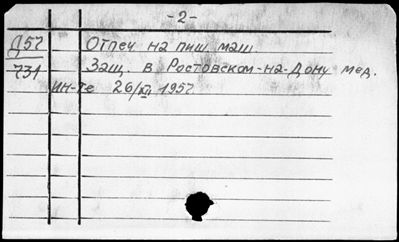 -2-
Д57 Отпеч на пиш. маш.
731 Защ. в Ростовском-на-Дону мед.
ин-те 26/XI 1957.